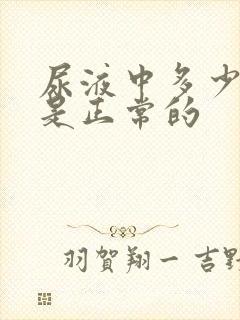 尿液中多少
是正常的
羽賀翔一 吉野